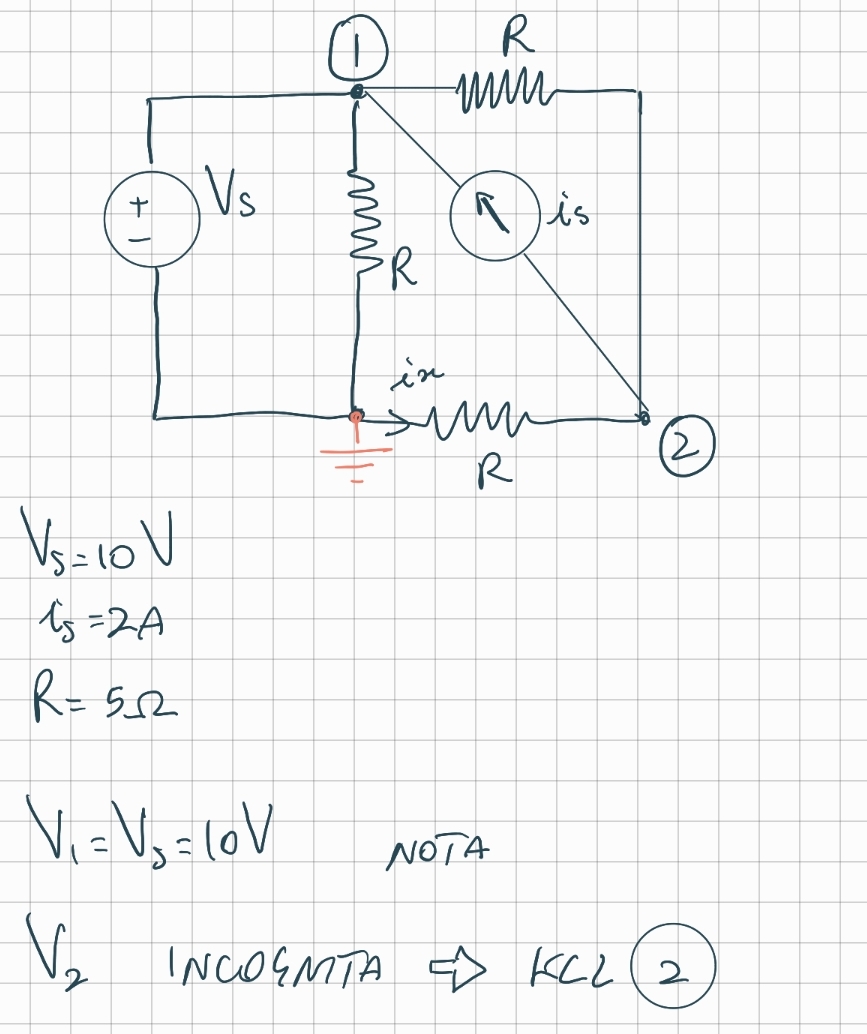 1
R
+
−
Vs
is
R
ix
R
2
Vs=10V
is=2A
R=5Ω
V1=Vs=10V NOTA
V2 INCOGNITA ⇨ KCL 2